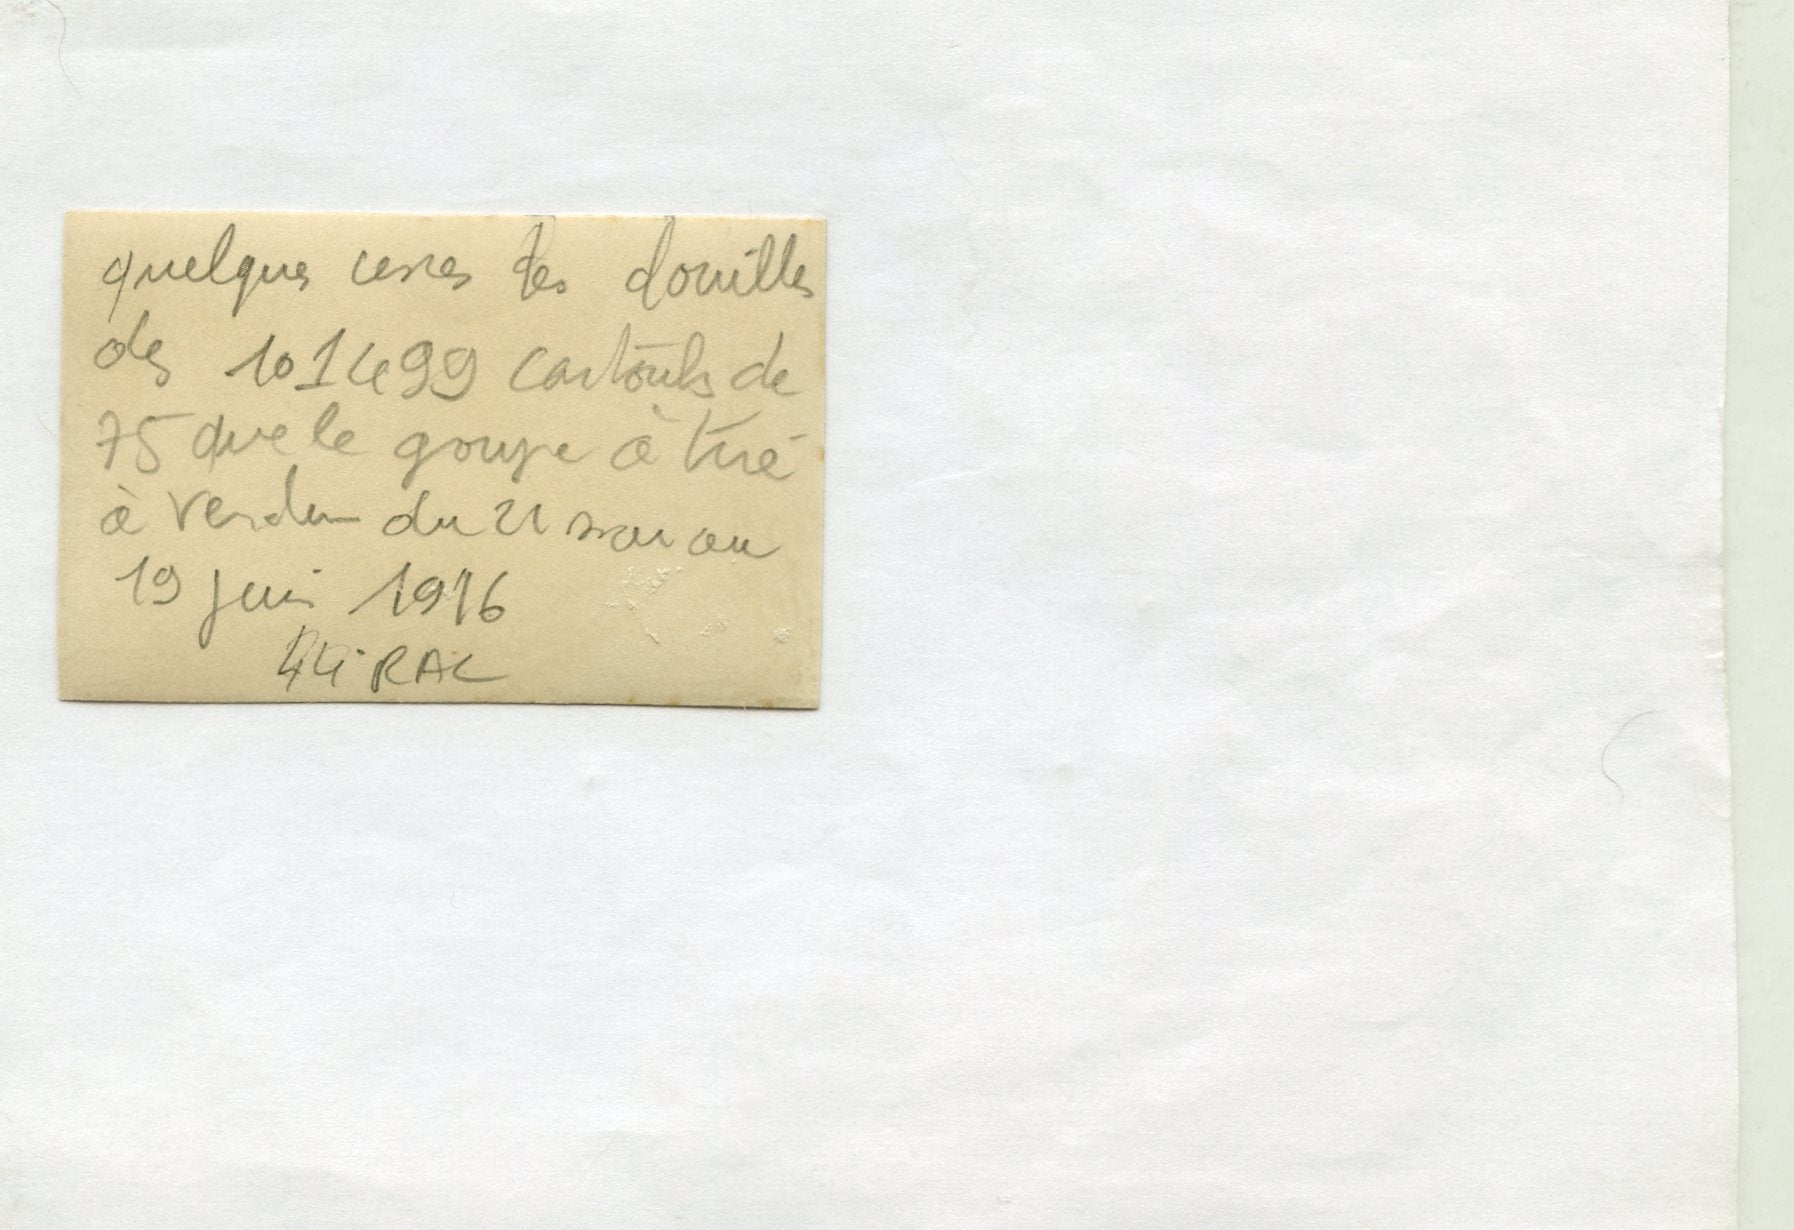 quelques unes des douilles
des 101499 cartouches de
75 que le goupe à tiré
à verdun du 21 mai au
19 juin 1916
44 RAC